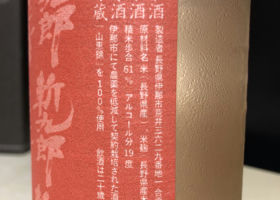 酒酒酒
蔵
製造者 長野県伊那市荒井三六二九番地一 合
原材料名 米(長野県産)、米麹 長野県産米
精米歩合 61% アルコール分 19度
伊那市にて農薬を低減して契約栽培された酒
「山恵錦」を100%使用 飲酒は二十歳
九郎
斬九郎
斬